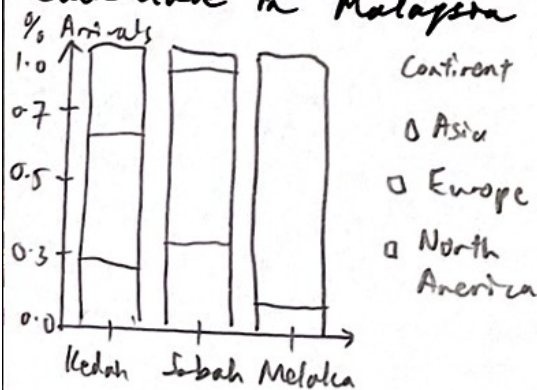 in Malaysia
% Arrivals
1.0
0.7
0.5
0.3
0.0
Kedah Sabah Melaka
Continent
Asia
Europe
North
America